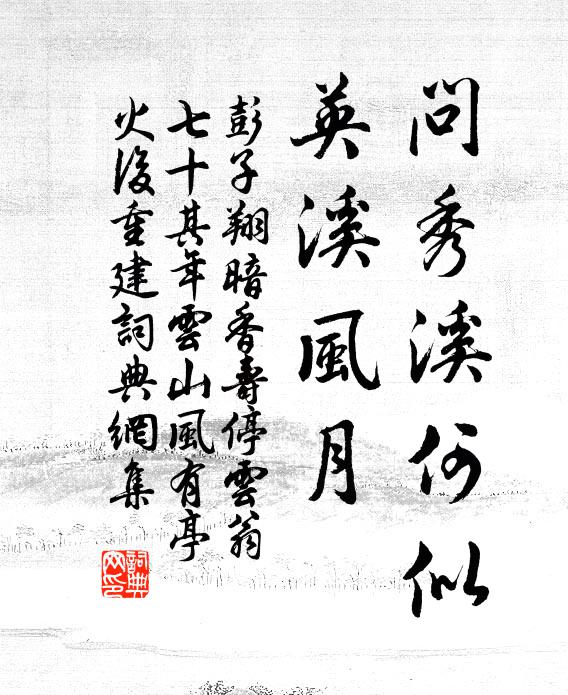 問秀溪何似
英溪風月
彭子翔暗香壽停雲翁
七十其年雲山風有亭
火後重建詞典網集
詞典
网印